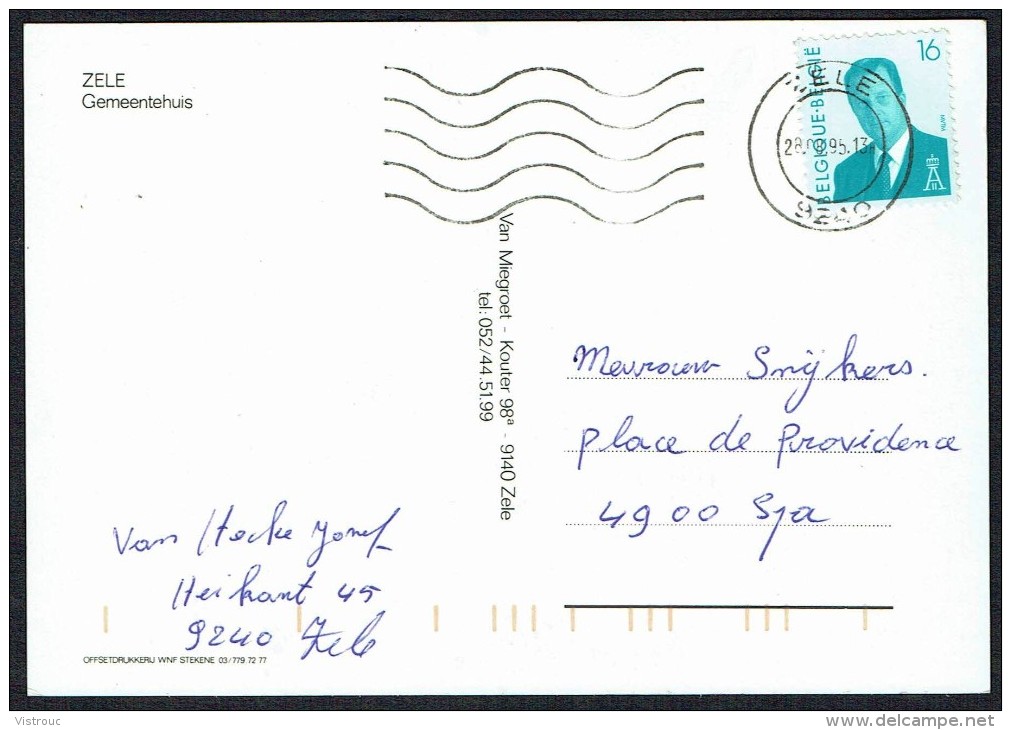 ZELE
Gemeentehuis
BELGIQUE·BELGIË
16
MVTM
ZELE
9240
Van Miegroet - Kouter 98ª - 9140 Zele
tel: 052/44.51.99
Mevrouw Snijkers.
place de Providence
4900 Spa
Van Hecke Jozef
Heikant 45
9240 Zele
OFFSETDRUKKERIJ WNF STEKENE 03/779 72 77
Vistrouc
www.delcampe.net